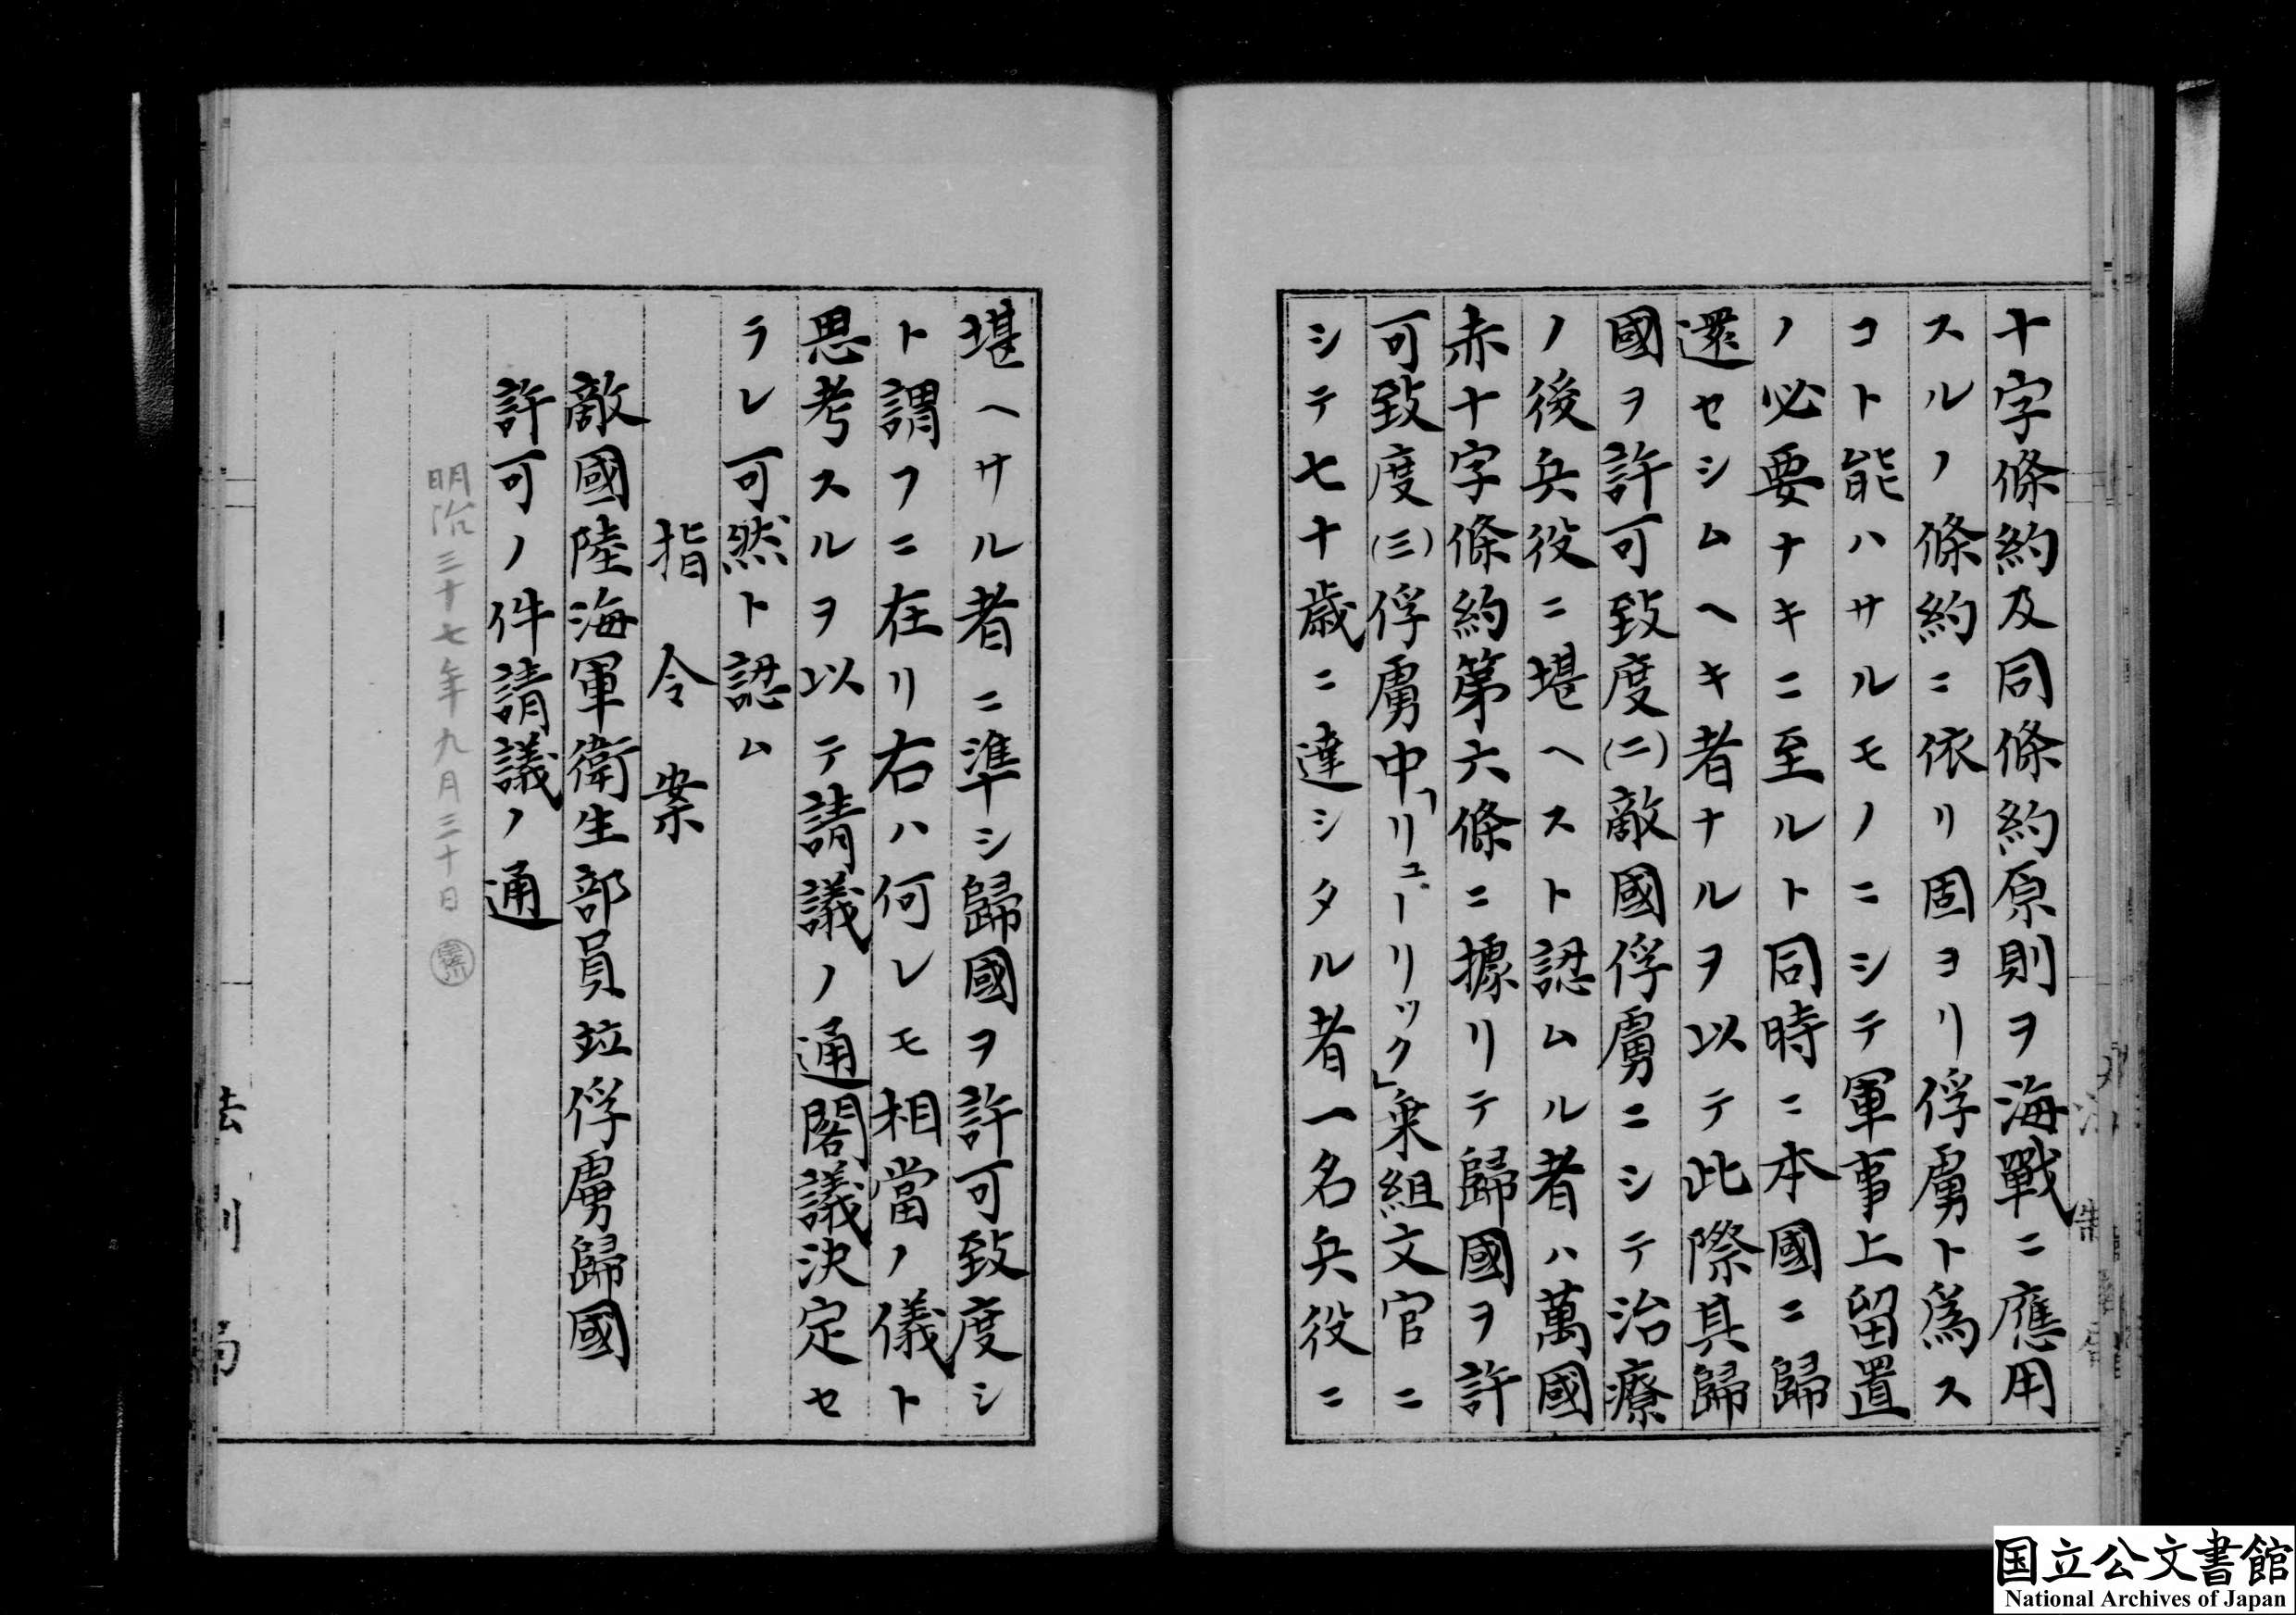 十字條約及同條約原則ヲ海戰ニ應用
スルノ條約ニ依リ固ヨリ俘虜ト爲ス
コト能ハサルモノニシテ軍事上留置
ノ必要ナキニ至ルト同時ニ本國ニ歸
還セシムヘキ者ナルヲ以テ此際其歸
國ヲ許可致度(二)敵國俘虜ニシテ治療
ノ後兵役ニ堪ヘスト認ムル者ハ萬國
赤十字條約第六條ニ據リテ歸國ヲ許
可致度(三)俘虜中「リューリック」乗組文官ニ
シテ七十歳ニ達シタル者一名兵役ニ
堪ヘサル者ニ準シ歸國ヲ許可致度シ
ト謂フニ在リ右ハ何レモ相當ノ儀ト
思考スルヲ以テ請議ノ通閣議決定セ
ラレ可然ト認ム
指令案
敵國陸海軍衛生部員竝俘虜歸國
許可ノ件請議ノ通
明治三十七年九月三十日
法制局
国立公文書館
National Archives of Japan